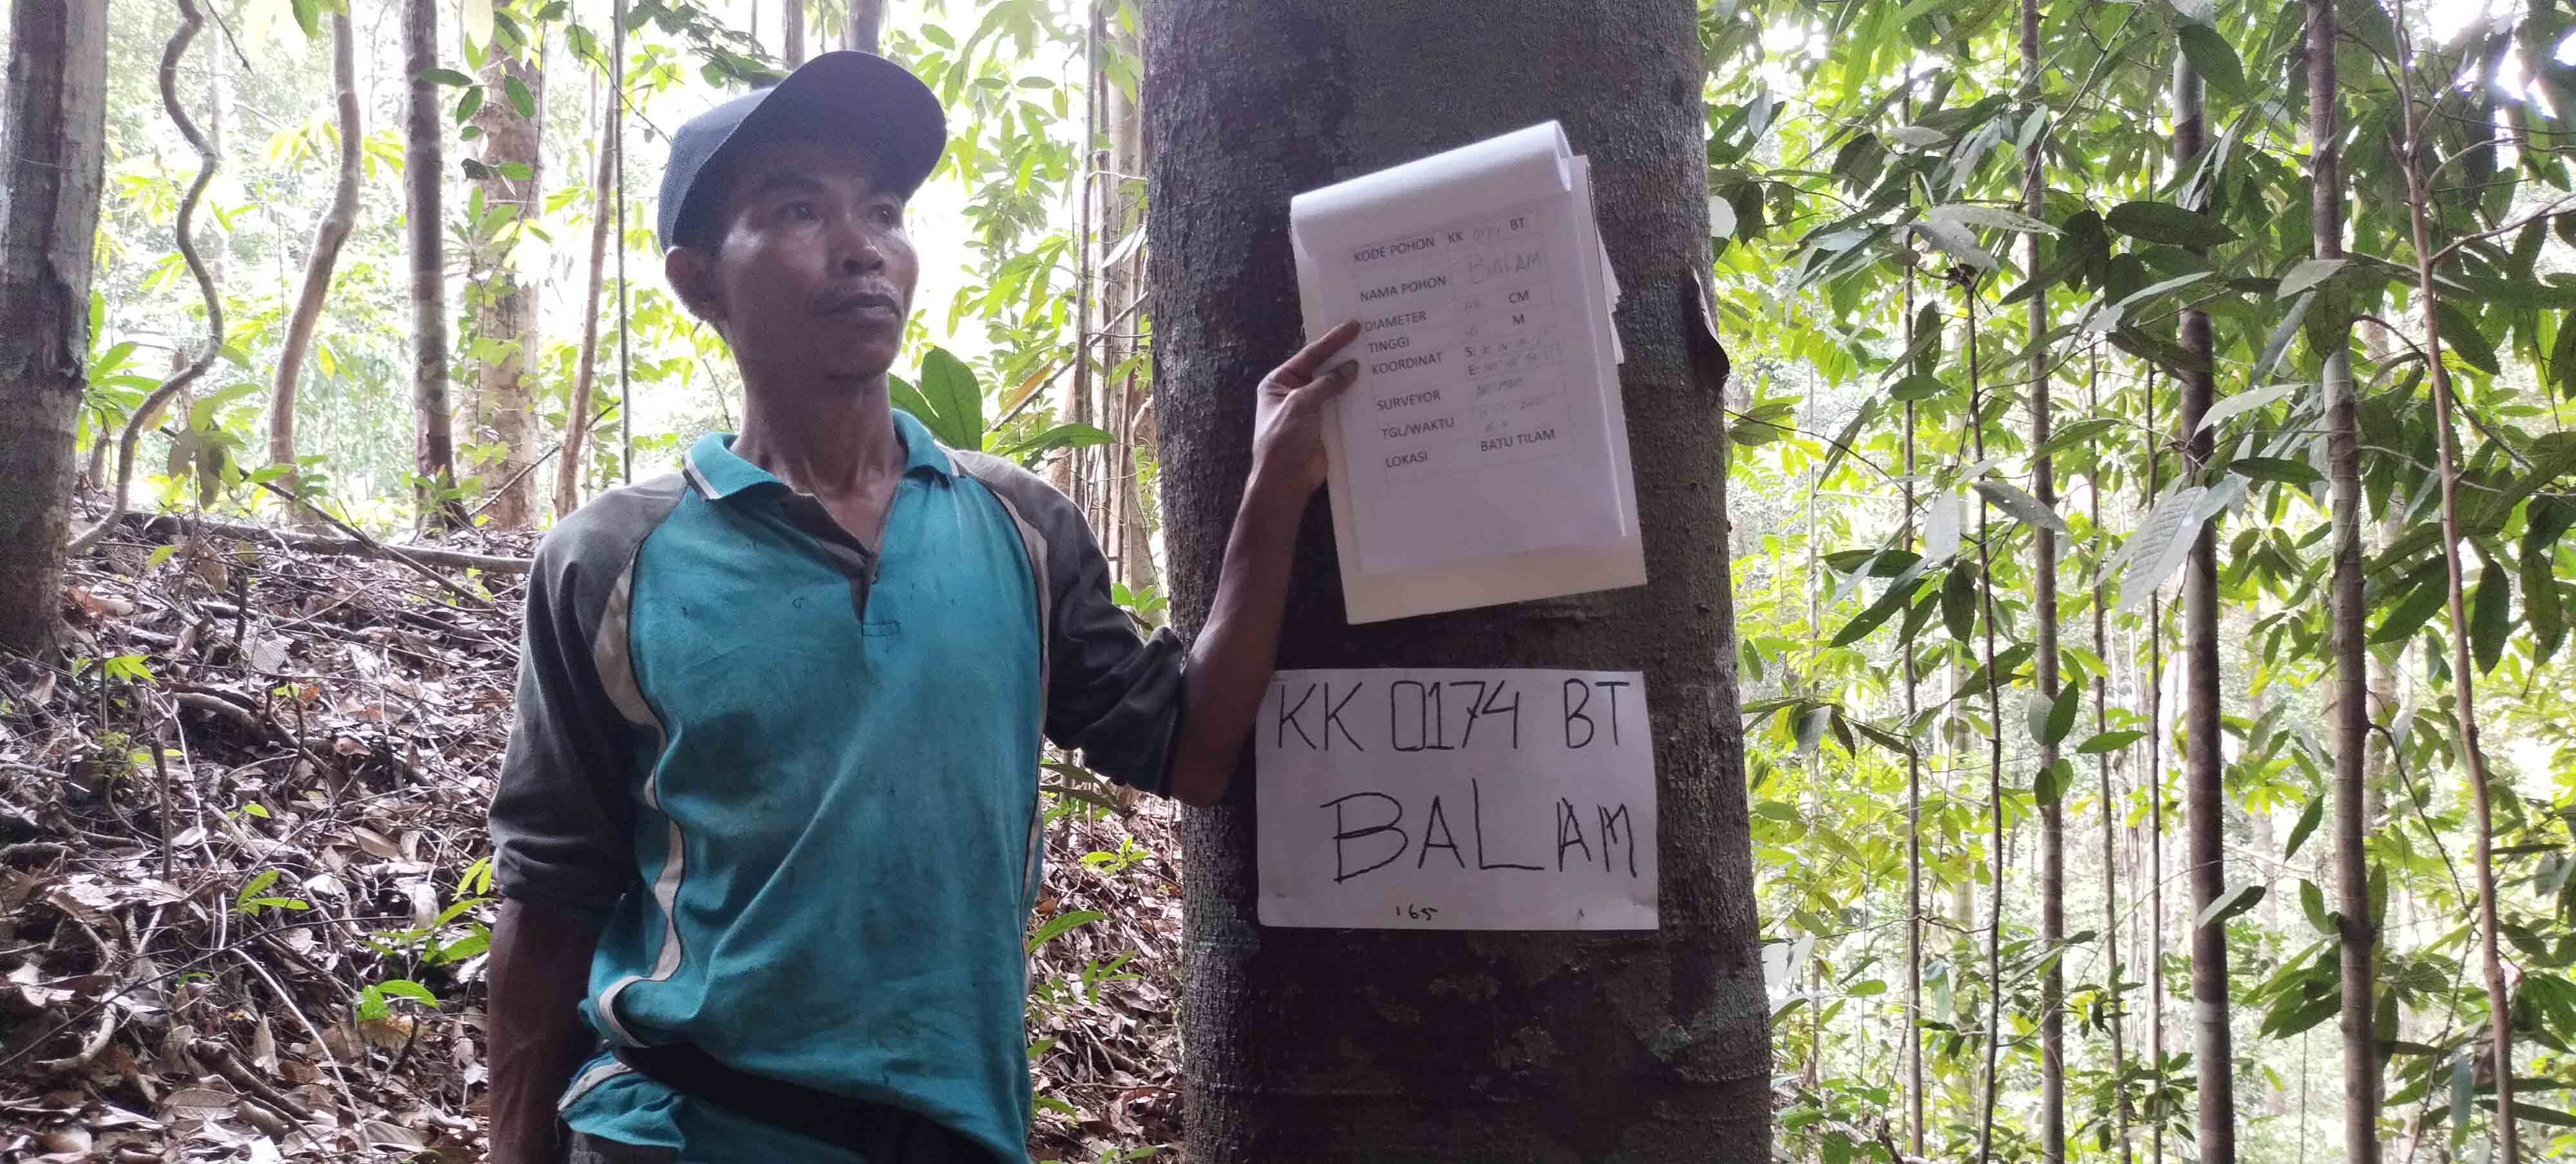 KODE POHON KK 0174 BT
NAMA POHON BALAM
DIAMETER CM
TINGGI M
KOORDINAT S:
E:
SURVEYOR
TGL/WAKTU
LOKASI BATU TILAM
KK 0174 BT
BALAM
165